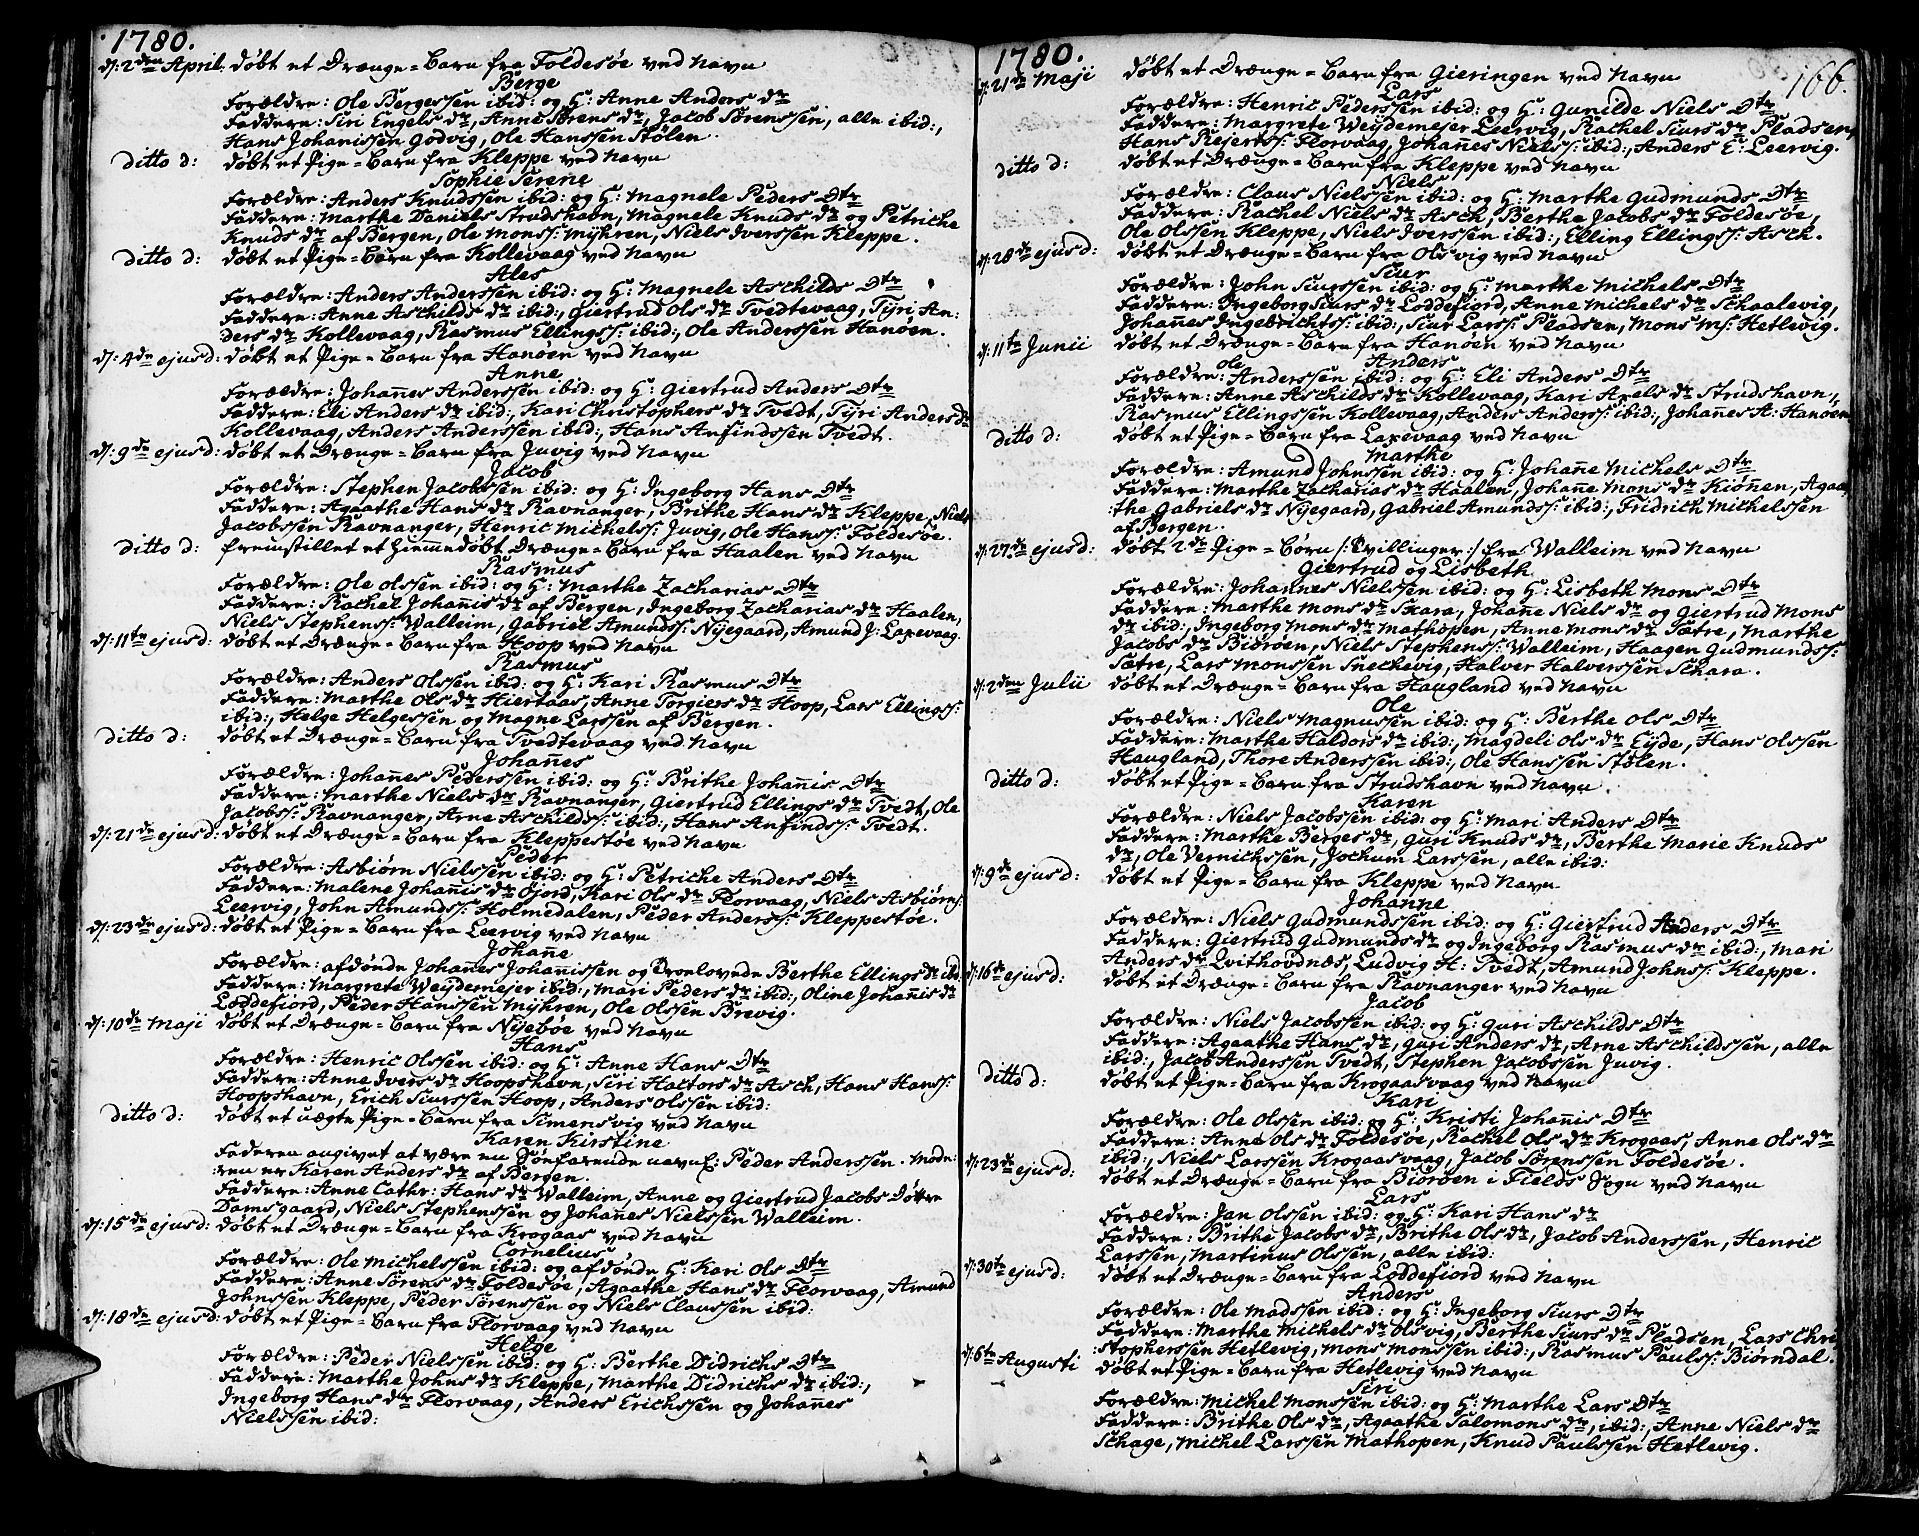 1780.
d: 2den April. døbt et Drænge=Barn fra Foldesøe ved Navn
Berge
Forældre: Ole Bergersen ibid: og H: Anne Anders Dtr
Faddere: Siri Engels dr, Anne Sørens dr, Jacob Sørenssen, alle ibid:,
Hans Johanissen Godvig, Ole Hanssen Stølen.
ditto d: døbt et Pige=Barn fra Kleppe ved Navn
Sophie Serene
Forældre: Anders Knudssen ibid: og H: Magnele Peders Dtr
Faddere: Marthe Daniels Strudshavn, Magnele Knuds dr og Petriche
Knuds dr af Bergen, Ole Monss: Myhren, Niels Iverssen Kleppe.
ditto d: døbt et Pige=Barn fra Kollevaag ved Navn
Ales
Forældre: Anders Anderssen ibid: og H: Magnele Aschilds Dtr
Faddere: Anne Aschilds dr ibid:, Giertrud Ols dr Tvedtevaag, Tyri An:
ders dr Kollevaag, Rasmus Ellingss: ibid:, Ole Anderssen Hanøen.
d: 4de ejusd: døbt et Pige=Barn fra Hanøen ved Navn
Anne
Forældre: Johañes Anderssen ibid: og H: Giertrud Anders Dtr
Faddere: Eli Anders dr ibid:, Kari Christophers dr Tvedt, Tyri Anders dr
Kollevaag, Anders Anderssen ibid:, Hans Anfindssen Tvedt.
d: 9de ejusd: døbt et Drænge=Barn fra Juvig ved Navn
Jacob
Forældre: Stephen Jacobssen ibid: og H: Ingeborg Hans Dtr
Faddere: Agaathe Hans dr Ravnanger, Brithe Hans dr Kleppe, Niels
Jacobssen Ravnanger, Henric Michelss: Juvig, Ole Hanss: Foldesøe.
ditto d: fremstillet et hiemmedøbt Drænge=Barn fra Haalen ved Navn
Rasmus
Forældre: Ole Olssen ibid: og H: Marthe Zacharias Dtr
Faddere: Rachel Johañis dr af Bergen, Ingeborg Zacharias dr Haalen,
Niels Stephenss: Walleim, Gabriel Amundss: Nyegaard, Amund J: Laxevaag.
d: 11te ejusd: døbt et Drænge=Barn fra Hoop ved Navn
Rasmus
Forældre: Anders Olssen ibid: og H: Kari Rasmus Dtr
Faddere: Marthe Ols dr Hiertaas, Anne Torgiers dr Hoop, Lars Ellingss:
ibid:, Helge Helgessen og Magne Larssen af Bergen.
ditto d: døbt et Drænge=Barn fra Tvedtevaag ved Navn
Johañes
Forældre: Johañes Pederssen ibid: og H: Brithe Johañis Dtr
Faddere: Marthe Niels dr Ravnanger, Giertrud Ellings dr Tvedt, Ole
Jacobss: Ravnanger, Arne Aschildss: ibid:, Hans Anfindss: Tvedt.
d: 21de ejusd: døbt et Drænge=Barn fra Kleppestøe ved Navn
Peder
Forældre: Asbiørn Nielssen ibid: og H: Petriche Anders Dtr
Faddere: Malene Johañis dr Øjord, Kari Ols dr Florvaag, Niels Asbiørns:
Leervig, John Amundss: Holmedalen, Peder Anderss: Kleppestøe.
d: 23de ejusd: døbt et Pige=Barn fra Leervig ved Navn
Johañe
Forældre: afdønde Johañes Johañissen og Troelovede Berthe Ellings dr ibd:
Faddere: Margrete Weydemejer ibid:, Mari Peders dr ibid:, Oline Johañis dr
Loddefiord, Peder Hanssen Myhren, Ole Olssen Brevig.
d: 10de Maji døbt et Drænge=Barn fra Nyebøe ved Navn
Hans
Forældre: Henric Olssen ibid: og H: Anne Hans Dtr
Faddere: Anne Ivers dr Hoopshavn, Siri Hactors dr Asch, Hans Hanss:
Hoopshavn, Erich Siurssen Hoop, Anders Olssen ibid:
ditto d: døbt et uægte Pige=Barn fra Simensvig ved Navn
Karen Kirstine
Faderen angivet at være en Søefarende navnl: Peder Anderssen. Mode:
:ren er Karen Anders dr af Bergen.
Faddere: Anne Cathr: Hans dr Walleim, Anne og Giertrud Jacobs Døttre
Damsgaard, Niels Stephenssen og Johañes Nielssen Walleim.
d: 15de ejusd: døbt et Drænge=Barn fra Krogaas ved Navn
Cornelius
Forældre: Ole Michelssen ibid: og afdønde H: Kari Ols Dtr
Faddere: Anne Sørens dr Foldesøe, Agaathe Hans dr Florvaag, Amund
Johnssen Kleppe, Peder Sørenssen og Niels Claussen ibid:
d: 18de ejusd: døbt et Pige=Barn fra Florvaag ved Navn
Helge
Forældre: Peder Nielssen ibid: og H: Berthe Didrichs Dtr
Faddere: Marthe Johns dr Kleppe, Marthe Didrichs dr ibid:,
Ingeborg Hans dr Florvaag, Anders Erichssen og Johañes
Nielssen ibid:
1780.
166.
d: 21de Maji døbt et Drænge=Barn fra Gieringen ved Navn
Lars
Forældre: Henric Pederssen ibid: og H: Gunilde Niels Dtr
Faddere: Margrete Weydemejer Leervig, Rachel Siurs dr Pladsen,
Hans Rejertss: Florvaag, Johañes Nielss: ibid:, Anders E: Leervig.
ditto d: døbt et Drænge=Barn fra Kleppe ved Navn
Niels
Forældre: Claus Nielssen ibid: og H: Marthe Gudmunds Dtr
Faddere: Rachel Niels dr Asch, Berthe Jacobs dr Foldesøe,
Ole Olssen Kleppe, Niels Iverssen ibid:, Elling Ellingss: Asch.
d: 28de ejusd: døbt et Drænge=Barn fra Olsvig ved Navn
Siur
Forældre: John Siurssen ibid: og H: Marthe Michels Dtr
Faddere: Ingeborg Siurs dr Loddefiord, Anne Michels dr Schaalevig,
Johañes Ingebrichtss: ibid:, Siur Larss: Pladsen, Mons Ms: Hetlevig.
d: 11te Junii døbt et Drænge=Barn fra Hanøen ved Navn
Anders
Forældre: Ole Anderssen ibid: og H: Eli Anders Dtr
Faddere: Anne Aschilds dr Kollevaag, Kari Axels dr Strudshavn:,
Rasmus Ellingssen Kollevaag, Anders Anderss: ibid:, Johañes A: Hanøen
ditto d: døbt et Pige=Barn fra Laxevaag ved Navn
Marthe
Forældre: Amund Johnssen ibid: og H: Johañe Michels Dtr
Faddere: Marthe Zacharias dr Haalen, Johañe Mons dr Kiønen, Agaa:
:the Gabriels dr Nyegaard, Gabriel Amundss: ibid:, Fridrich Michelssen
af Bergen.
d: 27de ejusd: døbt 2de Pige=Børn /:Tvillinger:/ fra Walleim ved Navn
Giertrud og Lisbeth
Forældre: Johannes Nielssen ibid: og H: Lisbeth Mons Dtr
Faddere: Marthe Mons dr Skara, Johañe Niels dr og Giertrud Mons
dr ibid:, Ingeborg Mons dr Mathopen, Anne Mons dr Sætre, Marthe
Jacobs dr Biørøen, Niels Stephenss: Walleim, Haagen Gudmundss:
Sætre, Lars Monssen Snechevig, Halver Halverssen Schara.
d: 2den Julii døbt et Drænge=Barn fra Haugland ved Navn
Ole
Forældre: Niels Magnussen ibid: og H: Berthe Ols Dtr
Faddere: Marthe Haldors dr ibid:, Magdeli Ols dr Eyde, Hans Olssen
Haugland, Thore Anderssen ibid:, Ole Hanssen Stølen.
ditto d: døbt et Pige=Barn fra Strudshavn ved Navn.
Karen
Forældre: Niels Jacobssen ibid: og H: Mari Anders Dtr
Faddere: Marthe Berges dr, Guri Knuds dr, Berthe Marie Knuds
dr, Ole Vernichssen, Jochum Larssen, alle ibid:
d: 9de ejusd: døbt et Pige=Barn fra Kleppe ved Navn
Johanne
Forældre: Niels Gudmundssen ibid: og H: Giertrud Anders Dtr
Faddere: Giertrud Gudmunds dr og Ingeborg Rasmus dr ibid:, Mari
Anders dr Qvithovdnæs, Ludvig H: Tvedt, Amund Johnss: Kleppe.
d: 16de ejusd: døbt et Drænge=Barn fra Ravnanger ved Navn
Jacob
Forældre: Niels Jacobssen ibid: og H: Guri Aschilds Dtr
Faddere: Agaathe Hans dr, Guri Anders dr, Arne Aschildssen, alle
ibid:, Jacob Anderssen Tvedt, Stephen Jacobssen Juvig.
ditto d: døbt et Pige=Barn fra Krogaasvaag ved Navn
Kari
Forældre: Ole Olssen ibid: og H: Kristi Johañis Dtr
Faddere: Anne Ols dr Foldesøe, Rachel Ols dr Krogaas, Anne Ols dr
ibid:, Niels Larssen Krogaasvaag, Jacob Sørenssen Foldesøe.
d: 23de ejusd: døbt et Drænge=Barn fra Biørøen i Fields Sogn ved Navn
Lars
Forældre: Jan Olssen ibid: og H: Kari Hans dr
Faddere: Brithe Jacobs dr, Brithe Ols dr, Jacob Anderssen, Henric
Larssen, Martinus Olssen, alle ibid:
d: 30te ejusd: døbt et Drænge=Barn fra Loddefiord ved Navn
Anders
Forældre: Ole Madssen ibid: og H: Ingeborg Siurs Dtr
Faddere: Marthe Michels dr Olsvig, Berthe Siurs dr Pladsen, Lars Chri
stopherssen Hetlevig, Mons Monssen ibid:, Rasmus Paulss: Biørndal.
d: 6te Augusti døbt et Pige=Barn fra Hetlevig ved Navn
Siri
Forældre: Michel Monssen ibid: og H: Marthe Lars Dtr
Faddere: Brithe Ols dr, Agaathe Salomons dr, ibid:, Anne Niels dr
Schage, Michel Larssen Mathopen, Knud Paulssen Hetlevig.